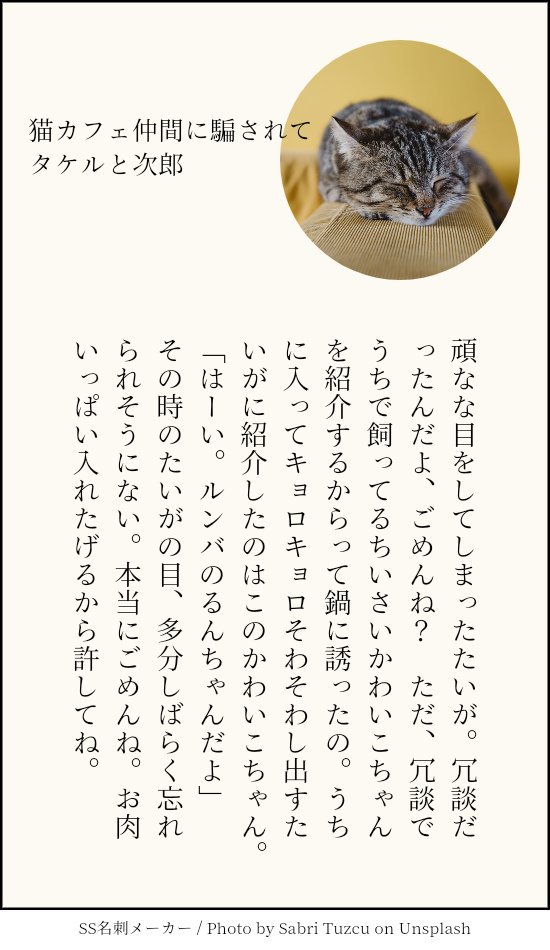 猫カフェ仲間に騙されて
タケルと次郎
頑なな目をしてしまったたいが。冗談だ
ったんだよ、ごめんね？　ただ、冗談で
うちで飼ってるちいさいかわいこちゃん
を紹介するからって鍋に誘ったの。うち
に入ってキョロキョロそわそわし出すた
いがに紹介したのはこのかわいこちゃん。
「はーい。ルンバのるんちゃんだよ」
その時のたいがの目、多分しばらく忘れ
られそうにない。本当にごめんね。お肉
いっぱい入れたげるから許してね。
SS名刺メーカー / Photo by Sabri Tuzcu on Unsplash